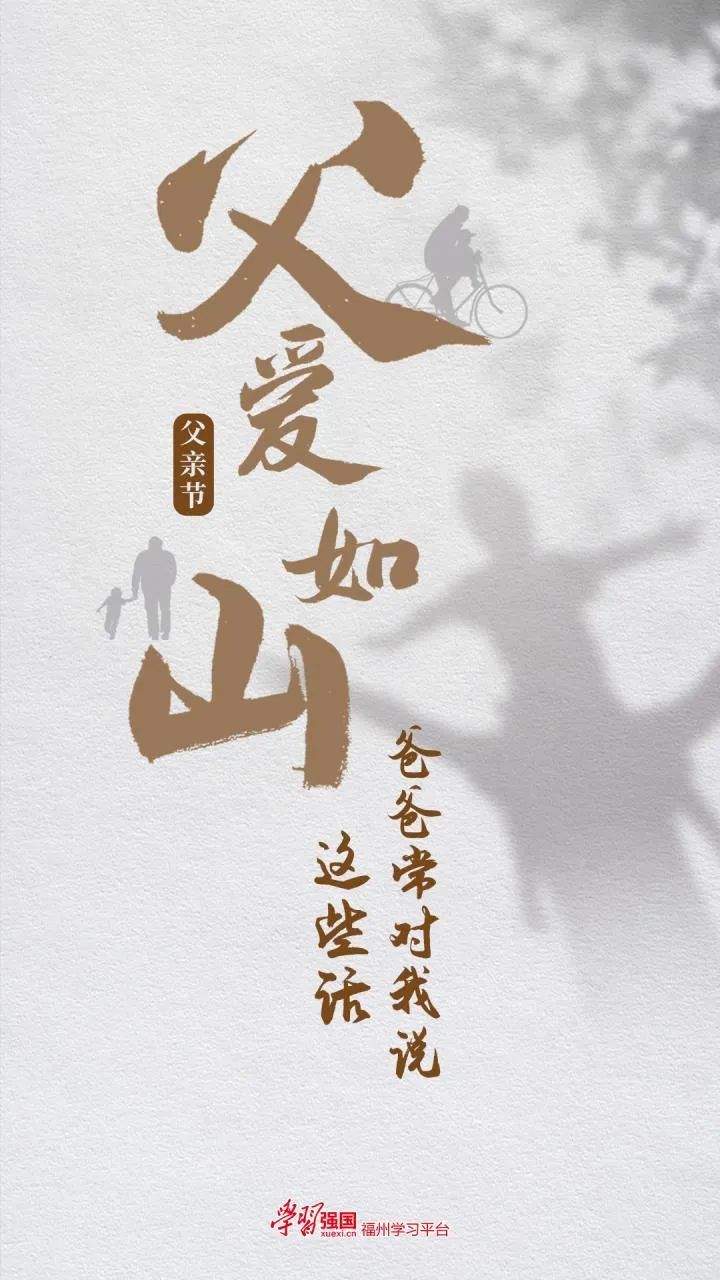 父爱如山
父亲节
爸爸常对我说
这些话
学习强国
xuexi.cn
福州学习平台